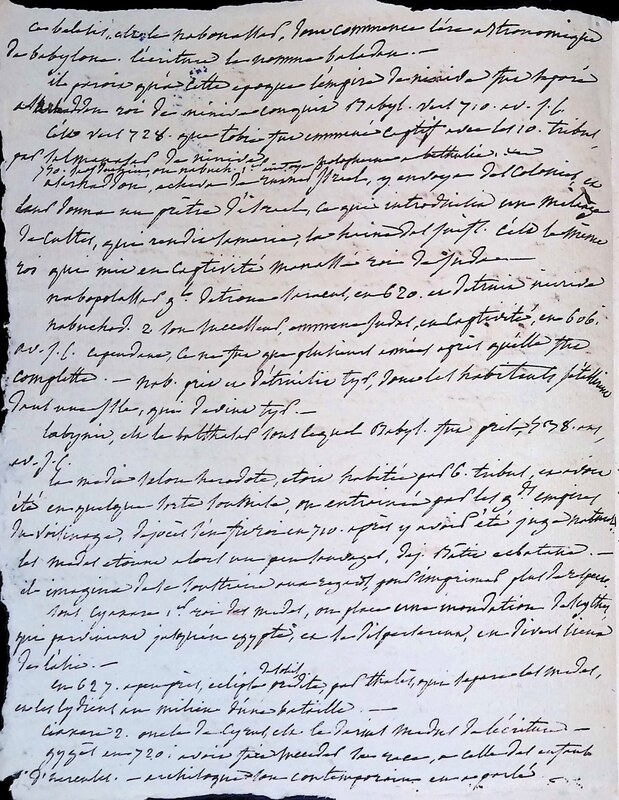 ce belesis, est le nabonassar, dont commence l'ère astronomique
de babylone. l'écriture le nomme baladan. —
il paroit qu'à cette epoque l'empire de ninive fut separé
roi de ninive conquit Babyl. vers 710. av. J.C.
C'est vers 728. que tobie fut emmené captif avec les 10. tribus,
par salmanasar de ninive,
ou nabuch. 1er envoye holopherne a bethulie.
asarhaddon, acheva de ruiner israel, y envoya des Colonies, et
leur donna un prêtre d'israel, ce qui introduisit un mélange
de Cultes, qui rendit samarie, la haine des juifs. C'est le même
roi qui mit en Captivité manassé roi de Juda. —
nabopolassar detrona saracus, en 620. et detruisit ninive
nabuchod. 2 son successeur emmena Juda, en Captivité, en 606.
av. J.C. cependant, ce ne fut que plusieurs années après qu'elle fut
complette. — nab. prit et détruisit tyr, dont les habitants
dans une isle, qui devint tyr. —
labynit, est le balthasar sous lequel Babyl. fut prise, 538. ans,
av. J.C.
la medie selon herodote, etoit habitée par 6. tribus, et avoit
été en quelque sorte soumise, ou entrainée par les gds empires
du voisinage, dejocès s'en fit roi en 710. après y avoir été juge
les medes etoient alors un peu sauvages, dej. bâtit ecbatane. —
il imagina de se soustraire aux regards pour imprimer plus de respect.
sous Cyaxare 1er roi des medes, on place une inondation de scythes
qui parvinrent jusqu'en egypte, et se disperserent, en divers lieux
de l'asie. —
en 627. a peu près, eclipse de soleil prédite par thalès, qui separa les medes,
et les lydiens au milieu d'une bataille. —
Ciaxare 2. oncle de Cyrus, est le darius medus de l'écriture —
gygès en 720. avoit fait succeder sa race, a celle des enfants
d'hercules. — archiloque son contemporain en a parlé. —